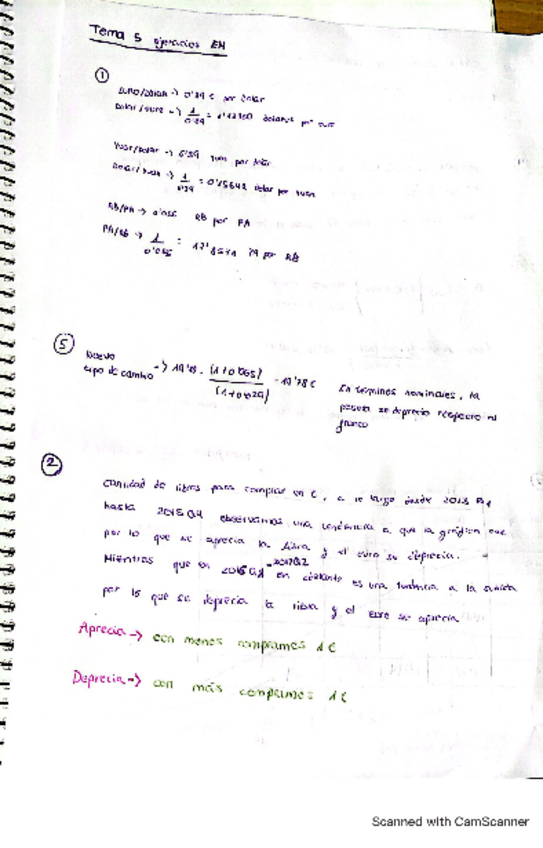 Tema 5 ejercicios EH
①
EURO/DOLAR → 0'89 € por dolar
Dolar/euro → 1/0'89 = 1'12360 dolares por euro
Yuan/Dolar → 6'39 yuan por dolar
Dolar/yuan → 1/6'39 = 0'15642 dolar por yuan
RB/PA → 0'056 RB por PA
PA/RB → 1/0'056 = 17'8571 PA por RB
⑤
Nuevo
tipo de cambio → 19'13 · (1+0'065)/(1+0'029) = 19'78 €
En términos nominales, la
peseta se deprecia respecto al
franco
②
Cantidad de libras para comprar un €, a lo largo desde 2013 Q1
hasta 2015 Q4 observamos una tendencia a que la gráfica cae
por lo que se aprecia la libra y el euro se deprecia.
Mientras que en 2016 Q1 - 2017 Q2 en adelante es una tendencia a la subida
por lo que se deprecia la libra y el euro se aprecia
Aprecia → con menos compramos 1€
Deprecia → con más compramos 1€
Scanned with CamScanner